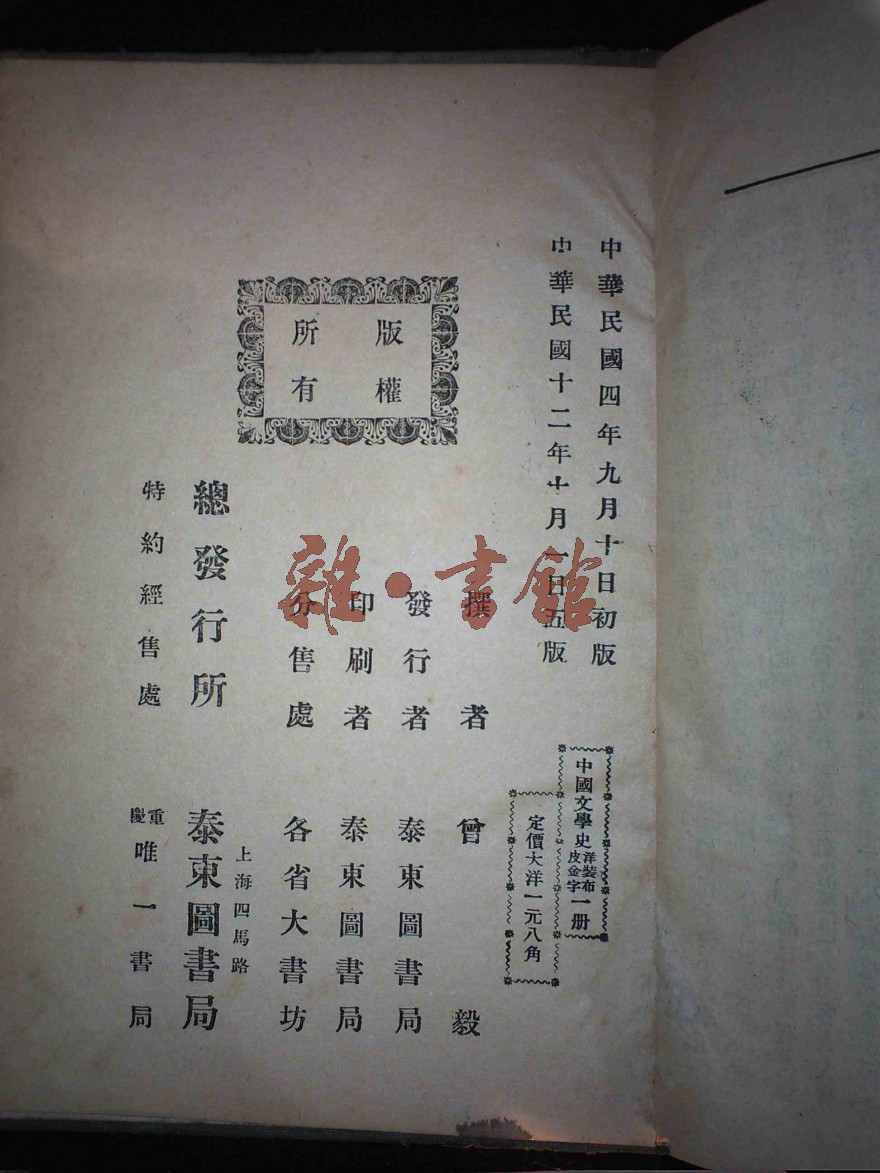 中華民國四年九月十日初版
中華民國十二年十月一日五版
中國文學史洋裝布皮金字一册
定價大洋一元八角
撰者 曾毅
發行者 泰東圖書局
印刷者 泰東圖書局
分售處 各省大書坊
版權
所有
上海四馬路
總發行所 泰東圖書局
特約經售處 重慶唯一書局
雜·書館